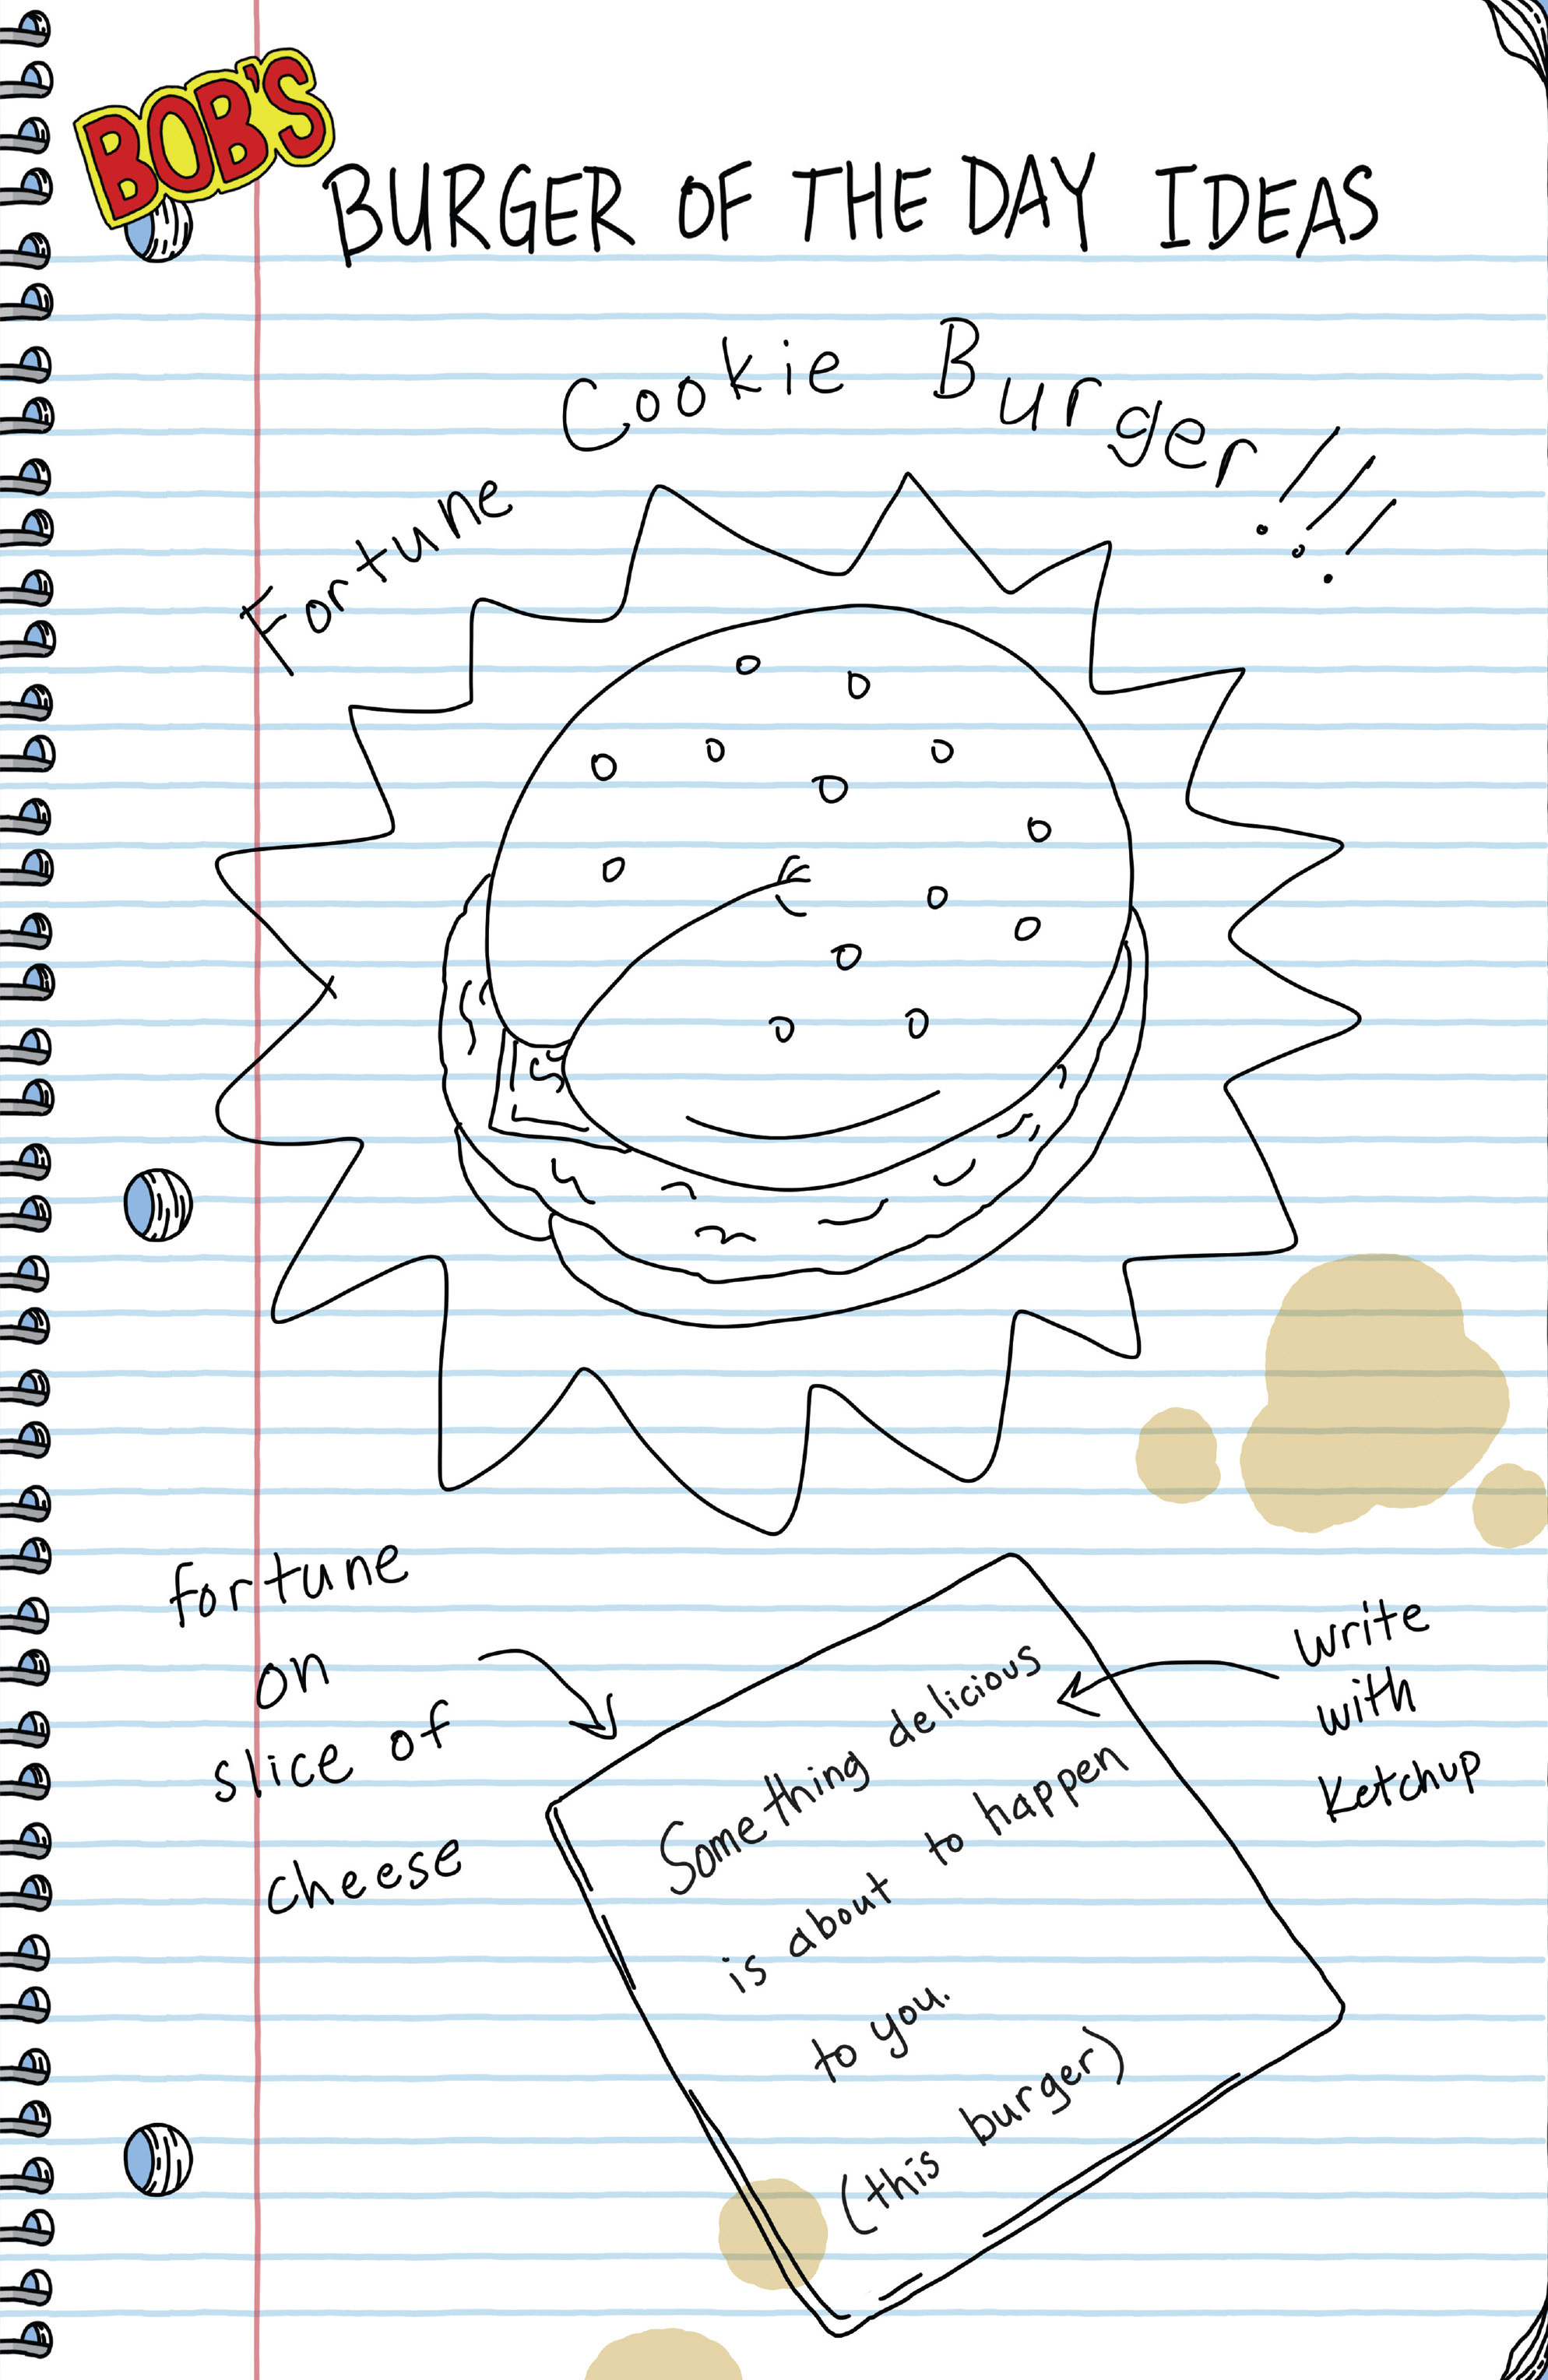 BOB'S
BURGER OF THE DAY IDEAS
Fortune Cookie Burger!!!
fortune
on
slice of
cheese
Something delicious
is about to happen
to you.
(this burger)
write
with
ketchup